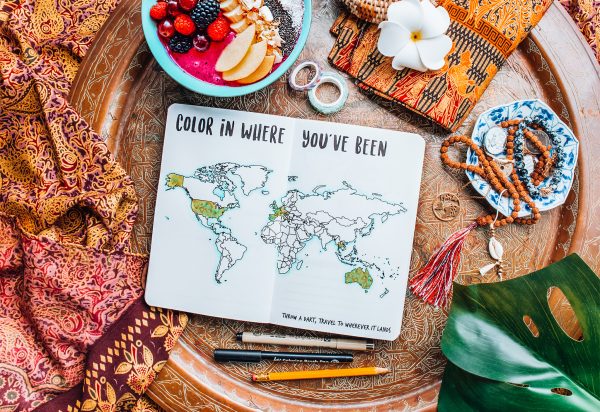 COLOR IN WHERE YOU'VE BEEN
THROW A DART, TRAVEL TO WHEREVER IT LANDS